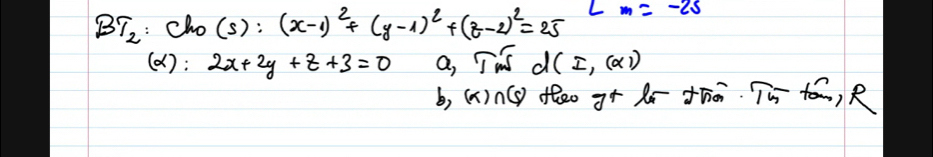 [ m = -25
BT₂: Cho (S): (x-1)² + (y-1)² + (z-2)² = 25
(α): 2x + 2y + z + 3 = 0 a, Tính d(I, (α))
b, (α)∩(S) theo gt là đtròn. Tìm tâm, R